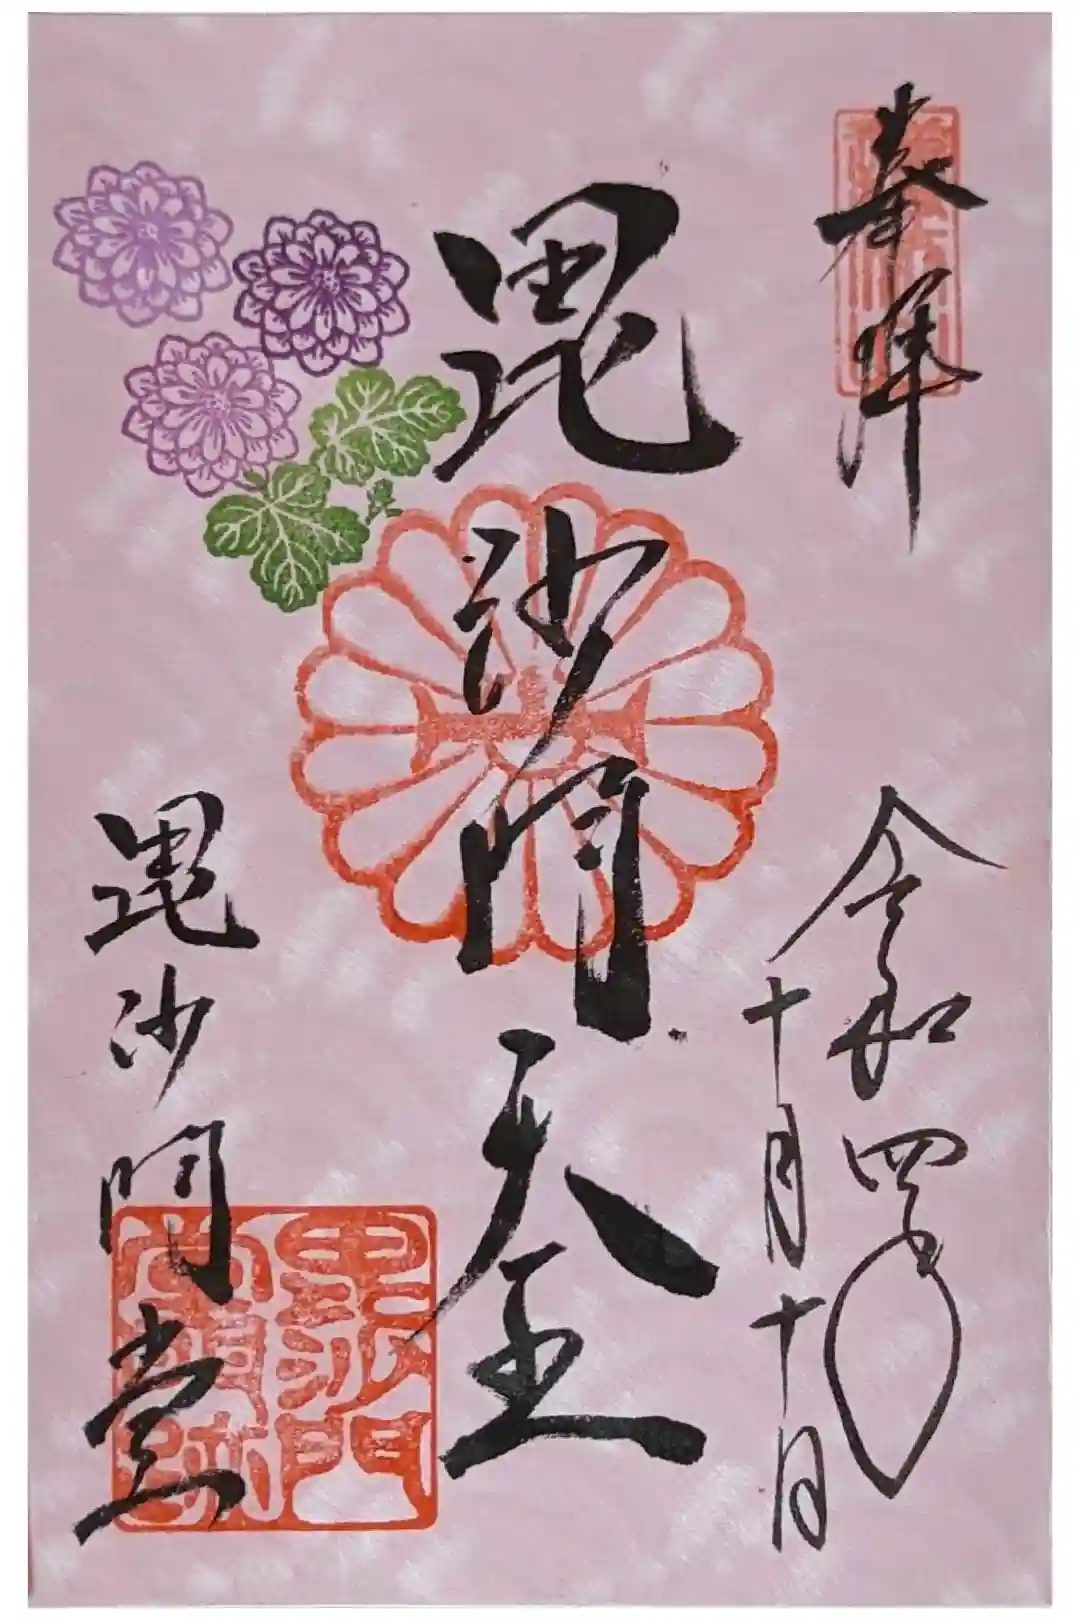 奉拝
令和四年
十月十日
毘沙門天王
毘沙門堂
毘沙門
堂門跡